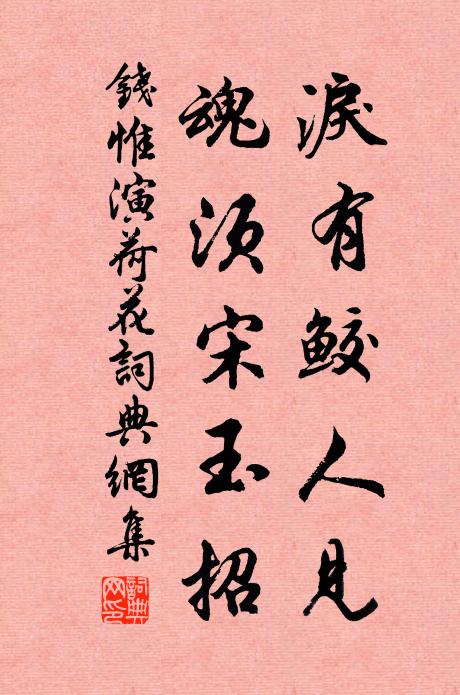 淚有鮫人見
魂須宋玉招
錢惟演荷花詞典網集
詞典網印